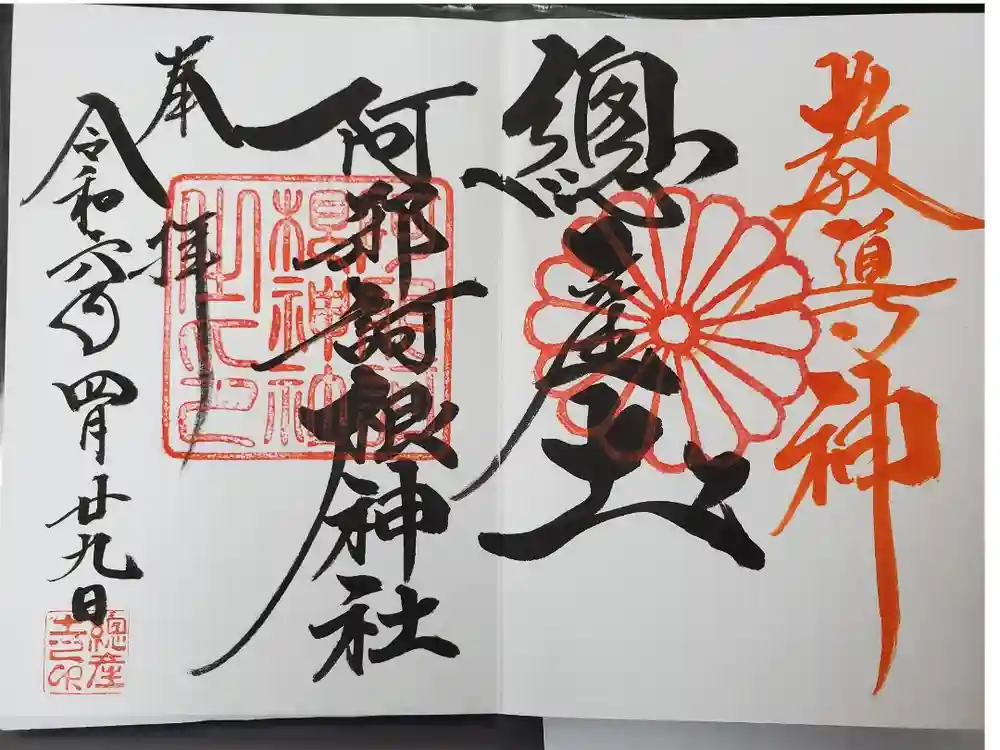 教導神
總産土
阿邪訶根神社
奉拝
令和六年四月廿九日
阿邪訶
根神社
總産
土印